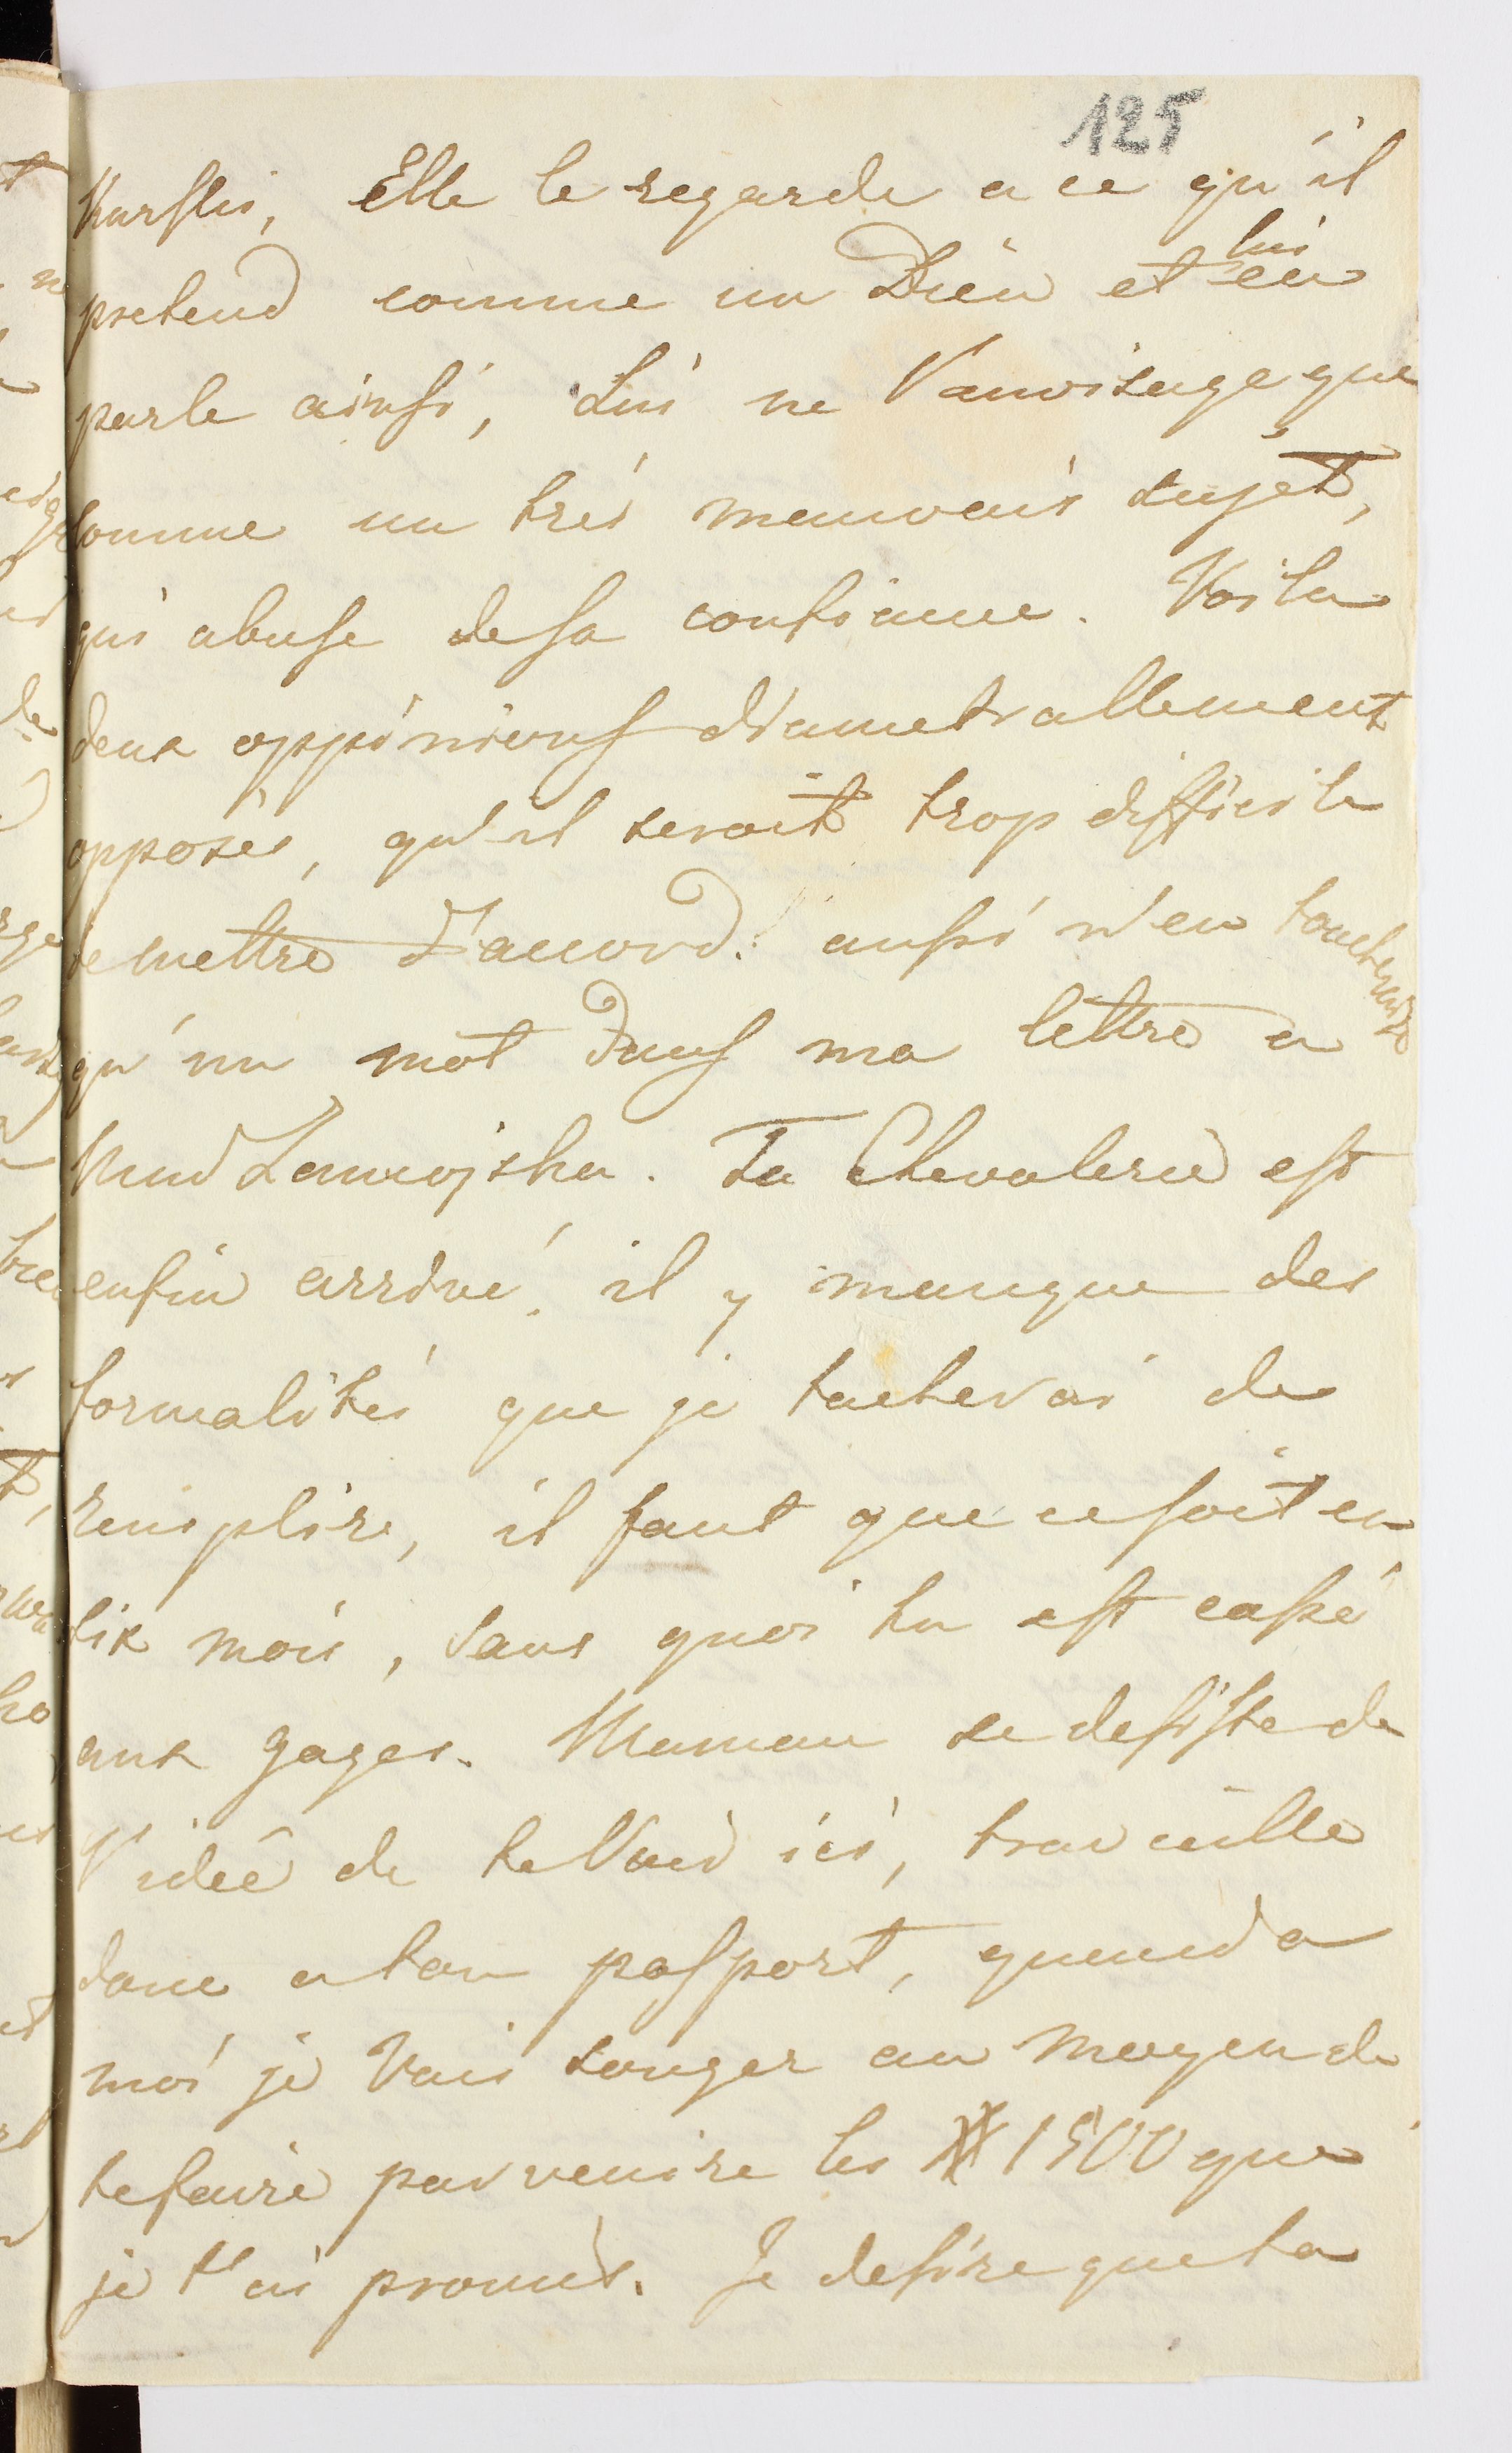 125
Karsski, Elle le regarde a ce qu'il
pretend comme un Dieu et lui en
parle ainsi, Lui ne l'anvisage que
comme un trés mauvais sujèt,
qui abuse de sa confiance. Voila
deux oppinions diametrallement
opposés, qu'il seroit trop difficile
de mettre d'accord. aussi n'en toucherai je
qu'un mot dans ma lettre a
Zamojska. Ta Chevalerie est
enfin arrivé, il y manque des
formalités que je tacherai de
remplire, il faut que ce soit en
six mois, sans quoi tu est cassé
aux gages. Maman se desiste de
l'ideé de te voir ici, travaille
donc a ton passport, quand a
moi je vais songer au moyen de
te faire parvenire les # 1500 que
je t'ai promis. Je desire que ta